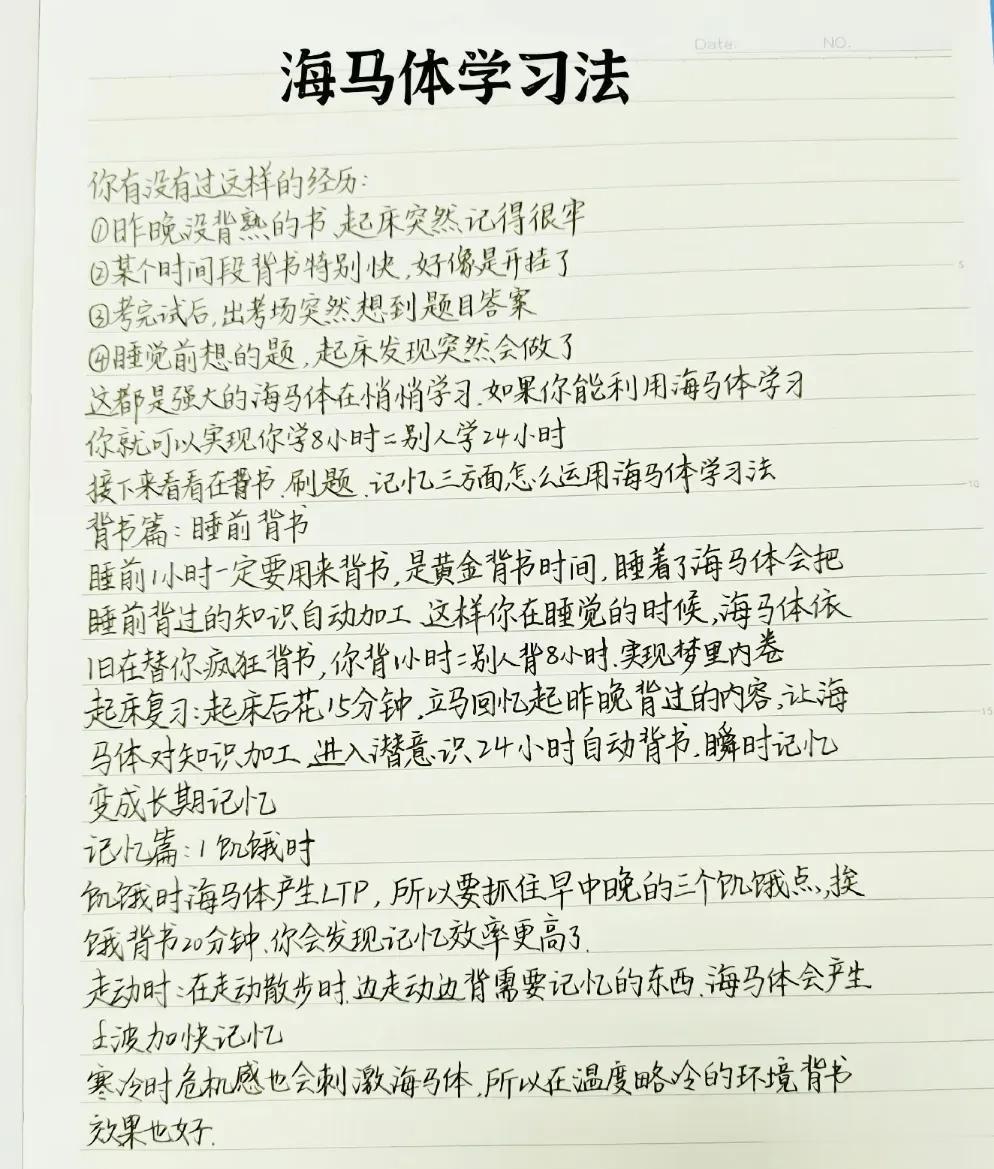 Date:  NO.
海马体学习法
你有没有过这样的经历:
①昨晚没背熟的书,起床突然记得很牢
②某个时间段背书特别快,好像是开挂了
③考完试后,出考场突然想到题目答案
④睡觉前想的题,起床发现突然会做了
这都是强大的海马体在悄悄学习.如果你能利用海马体学习
你就可以实现你学8小时=别人学24小时
5
接下来看看在背书、刷题、记忆三方面怎么运用海马体学习法
10
背书篇:睡前背书
睡前1小时一定要用来背书,是黄金背书时间,睡着了海马体会把
睡前背过的知识自动加工、这样你在睡觉的时候,海马体依
旧在替你疯狂背书,你背1小时=别人背8小时.实现梦里内卷
起床复习:起床后花15分钟,立马回忆起昨晚背过的内容,让海
15
马体对知识加工,进入潜意识24小时自动背书.瞬时记忆
变成长期记忆
记忆篇:1饥饿时
饥饿时海马体产生LTP,所以要抓住早中晚的三个饥饿点,挨
饿背书20分钟、你会发现记忆效率更高了.
走动时:在走动散步时.边走动边背需要记忆的东西.海马体会产生
波加快记忆
寒冷时危机感也会刺激海马体.所以在温度略冷的环境背书
效果也好.